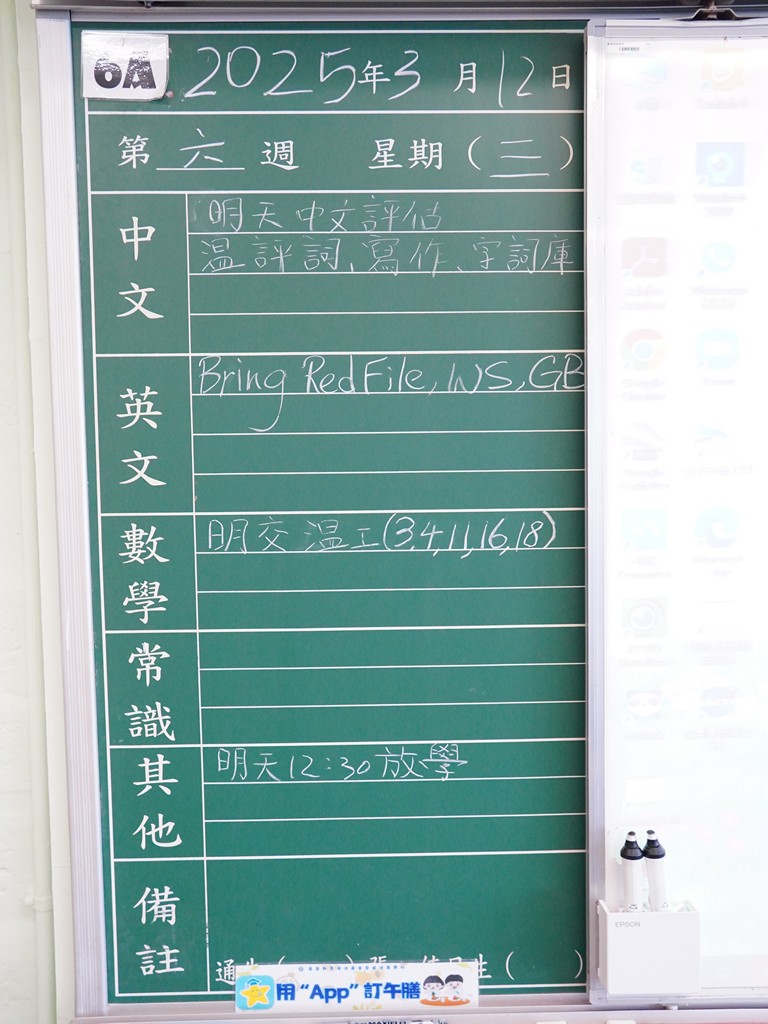 6A 2025年3月12日
第六週 星期(三)
中文
明天中文評估
温評詞、寫作、字詞庫
英文
Bring Red File, WS, GB
數學
明交温工(3,4,11,16,18)
常識
其他
明天12:30放學
備註
用“App”訂午膳
EPSON